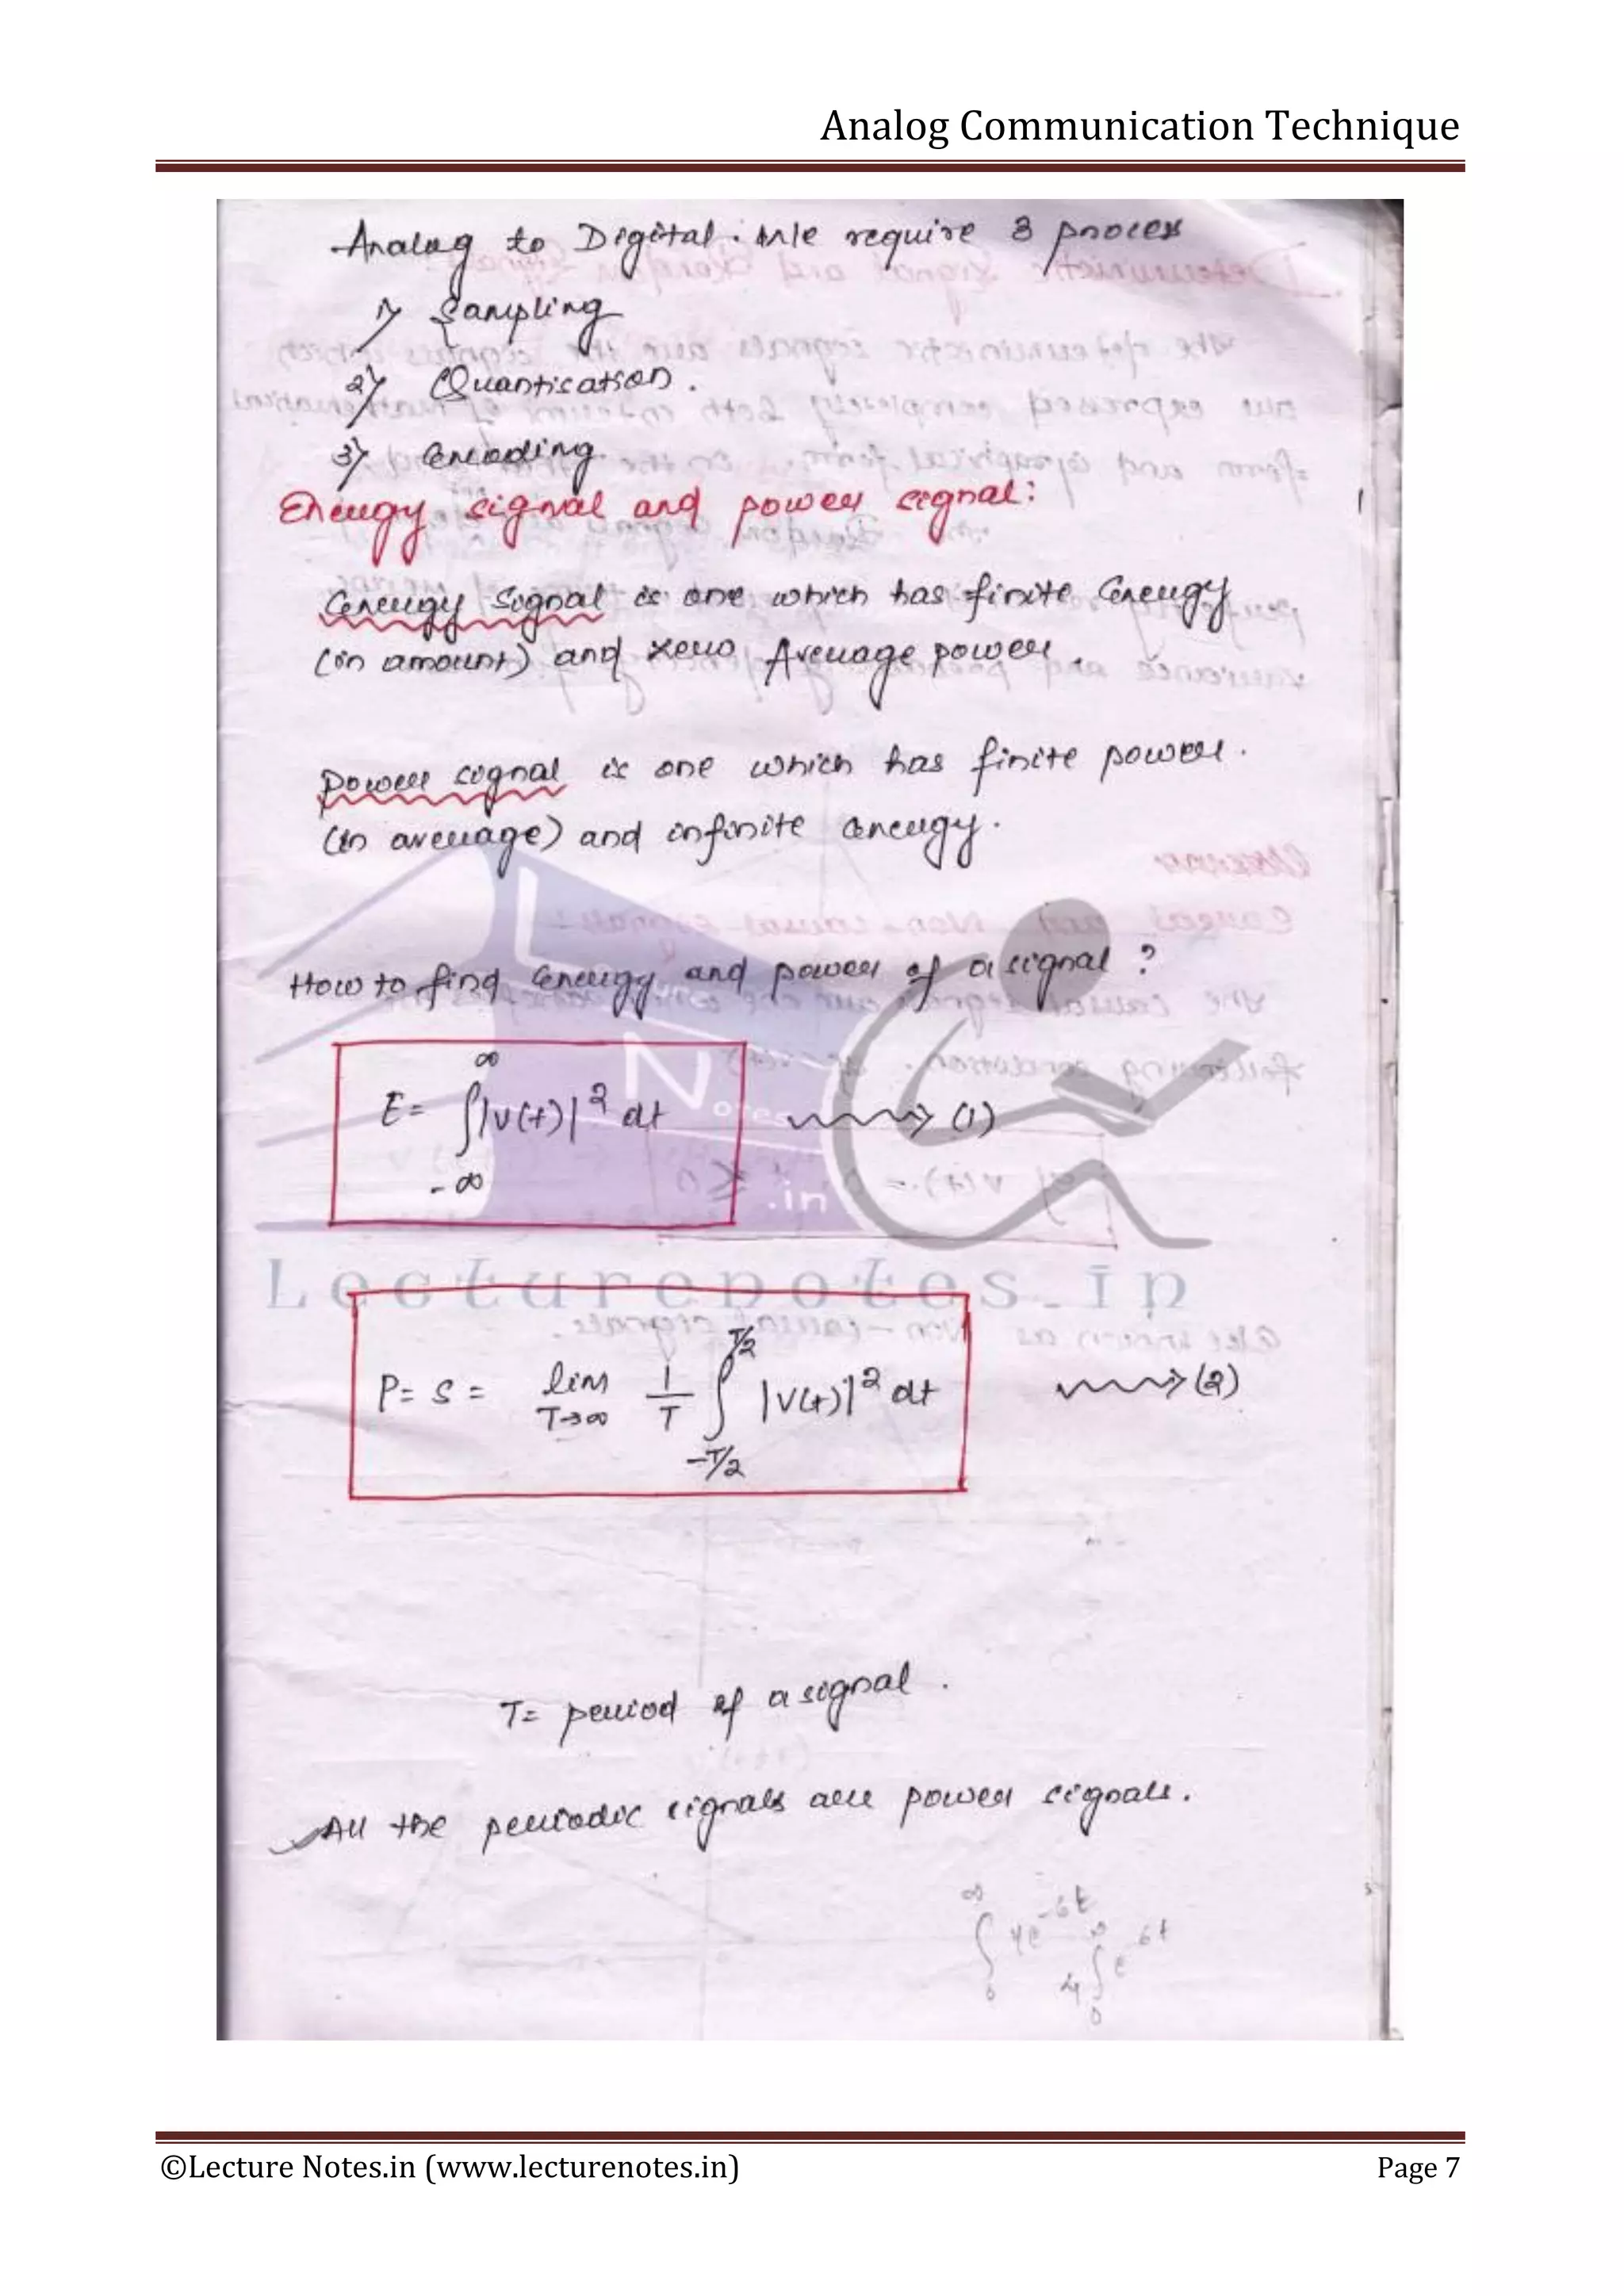 Analog Communication Technique
Analog to Digital. We require 3 process
1) Sampling
2) Quantisation.
3) Encoding
Energy signal and power signal:
Energy Signal is one which has finite Energy
(in amount) and zero Average power.
Power signal is one which has finite power.
(in average) and infinite energy.
How to find Energy and power of a signal ?
E = ∫_{-∞}^{∞} |v(t)|² dt ⟶ (1)
P = S = lim_{T→∞} 1/T ∫_{-T/2}^{T/2} |v(t)|² dt ⟶ (2)
Lecturenotes.in
T = period of a signal.
All the periodic signals are power signals.
∫_0^∞ 4e^{-6t}
4 ∫_0^∞ e^{6t}
©Lecture Notes.in (www.lecturenotes.in) Page 7